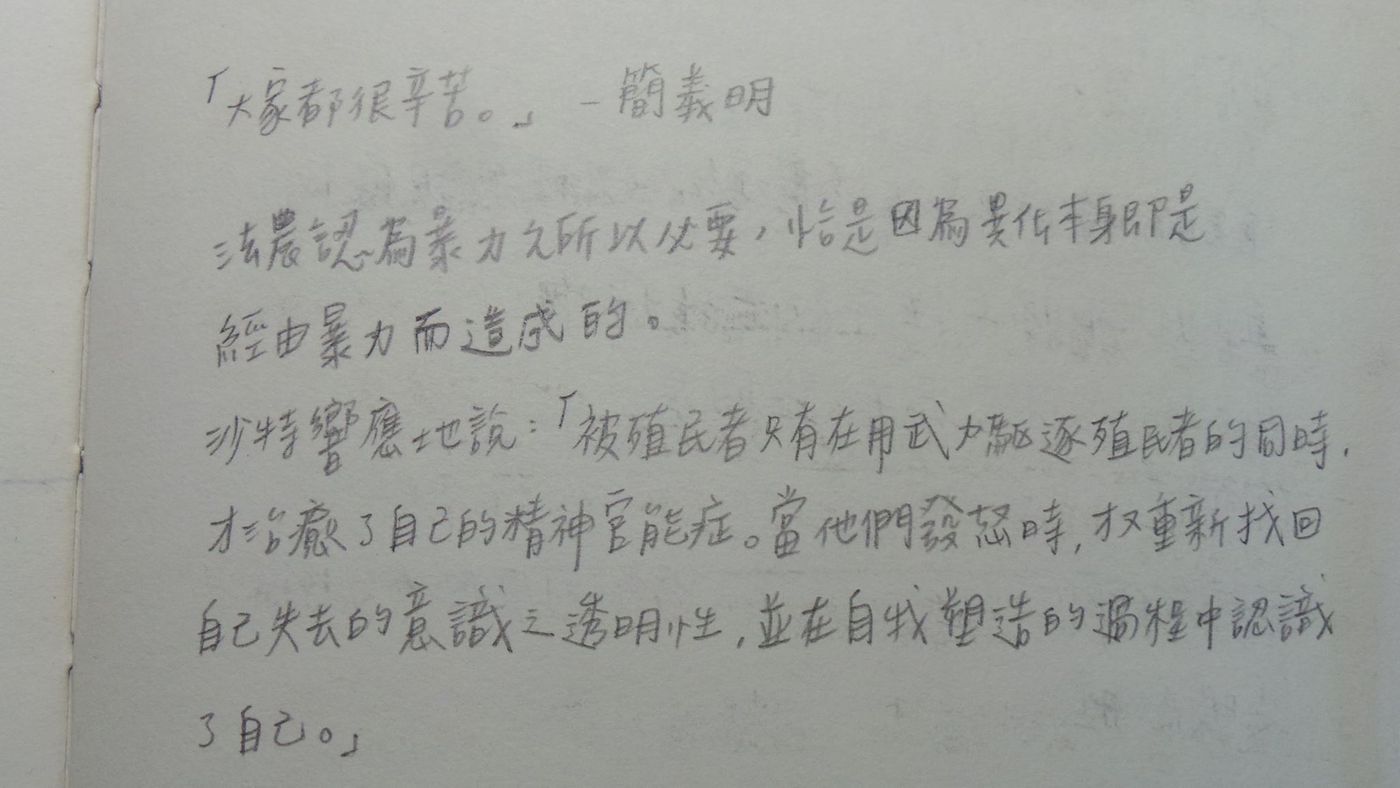 「大家都很辛苦。」 – 簡義明
法農認為暴力之所以必要，恰是因為異化本身即是
經由暴力而造成的。
沙特響應地說：「被殖民者只有在用武力驅逐殖民者的同時，
才治癒了自己的精神官能症。當他們發怒時，才又重新找回
自己失去的意識之透明性，並在自我塑造的過程中認識
了自己。」